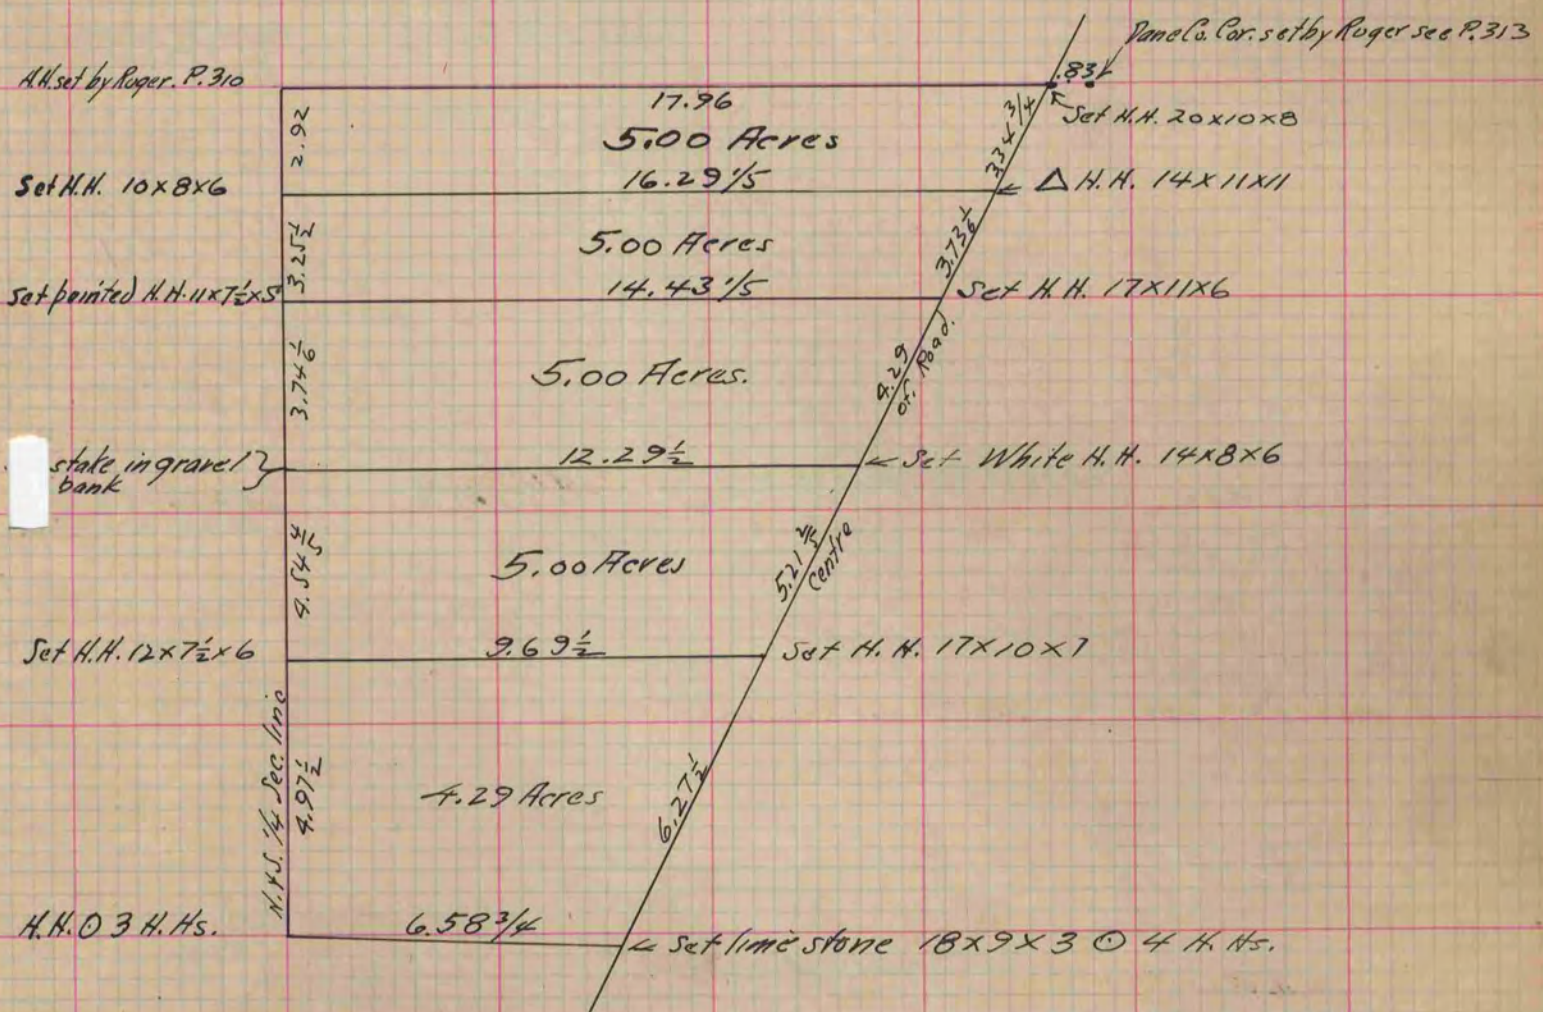 Dane Co. Cor. set by Ruger see P. 313
H.H. set by Ruger. P. 310
.83L
17.96
Set H.H. 20x10x8
2.92
5.00 Acres
3.34 3/4
Set H.H. 10x8x6
16.29 1/5
Δ H.H. 14x11x11
3.25 1/2
5.00 Acres
3.73 1/6
Set pointed H.H. 11x7 1/2x5
14.43 1/5
Set H.H. 17x11x6
3.74 1/6
5.00 Acres.
4.29
of Road.
stake in gravel }
bank
12.29 1/2
Set White H.H. 14x8x6
4.54 4/5
5.00 Acres
5.21 2/5
Centre
Set H.H. 12x7 1/2x6
9.69 1/2
Set H.H. 17x10x7
N.&S. 1/4 Sec. line
4.97 1/2
4.29 Acres
6.27 1/2
H.H. ⊙ 3 H.Hs.
6.58 3/4
Set lime stone 18x9x3 ⊙ 4 H.Hs.